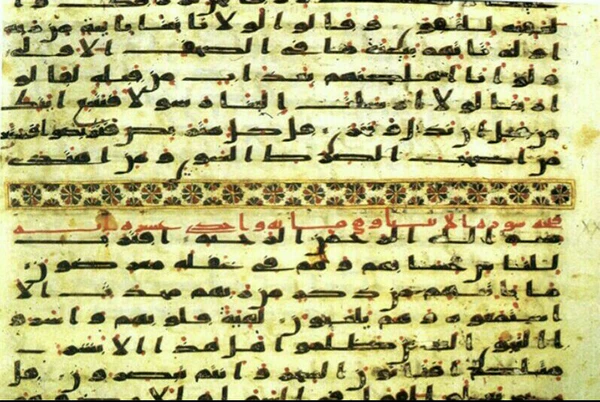 لعقبة للتقوى وقالوا لولا ياتينا باية من ربه
او لم تاتهم بينة ما في الصحف الاولى
ولو انا اهلكنهم بعذاب من قبله لقالو
ا ربنا لولا ارسلت الينا رسولا فنتبع ايتك
من قبل ان نذل ونخزى قل كل متربص فتربصوا فستعلمون
من اصحب الصرط السوي ومن اهتدى
سورة الانبيا وهي مائة واحدى عشرة اية
بسم الله الرحمن الرحيم اقترب
للناس حسابهم وهم في غفلة معرضون
ما ياتيهم من ذكر من ربهم محدث الا
استمعوه وهم يلعبون لهية قلوبهم واسرو
ا النجوى الذين ظلموا هل هذا الا بشر
مثلكم افتاتون السحر وانتم تبصرون قل